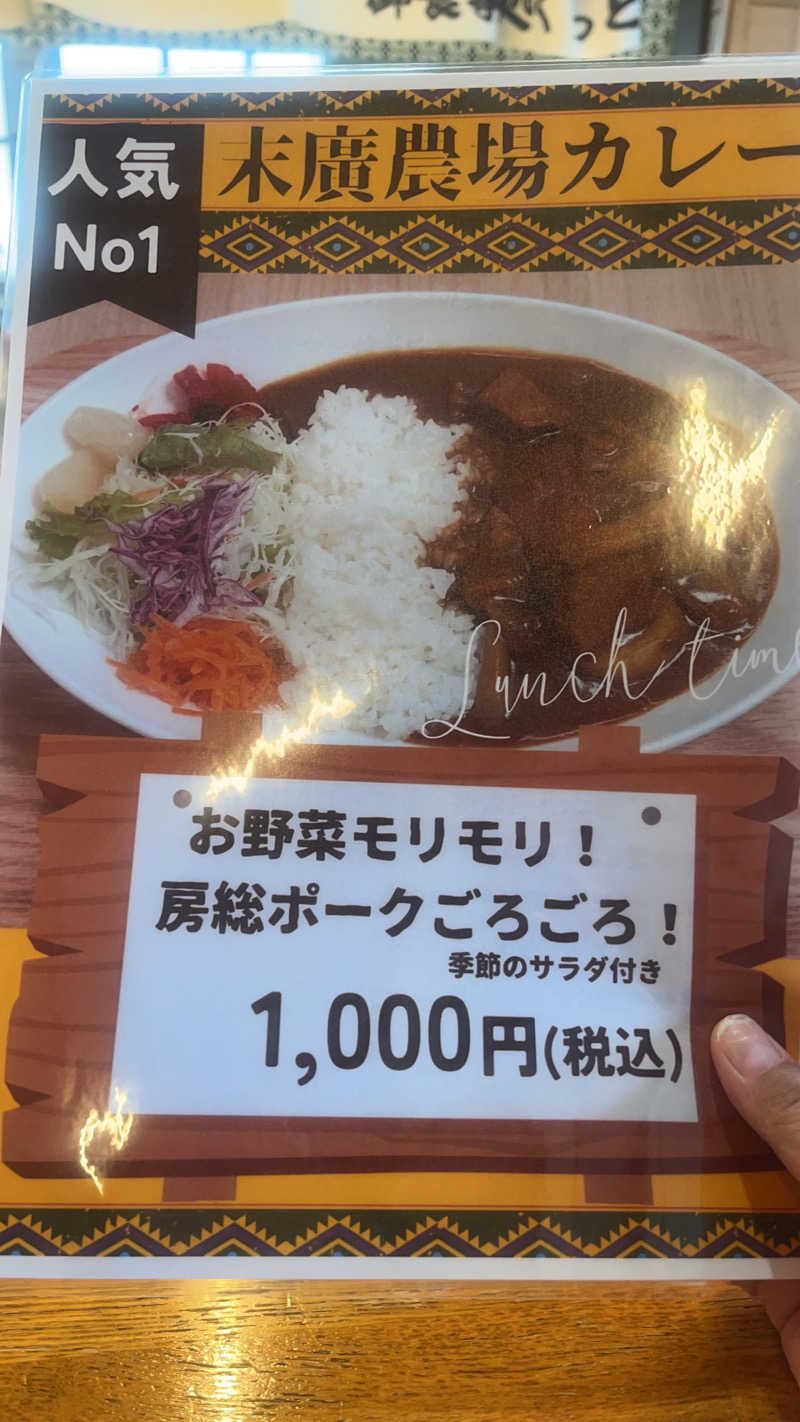 人気
No1
末廣農場カレー
Lunch time
お野菜モリモリ！
房総ポークごろごろ！
季節のサラダ付き
1,000円(税込)